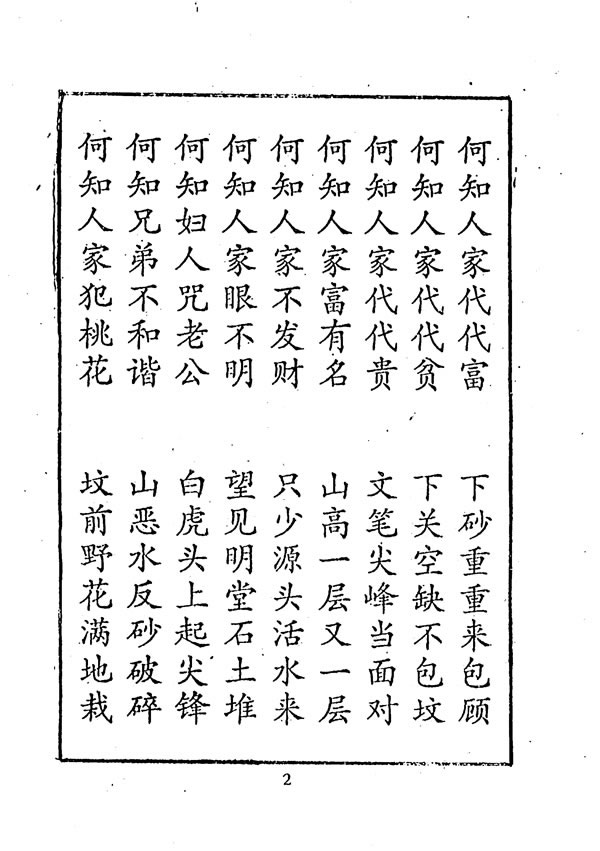 何知人家代代富 下砂重重来包顾
何知人家代代贫 下关空缺不包坟
何知人家代代贵 文笔尖峰当面对
何知人家富有名 山高一层又一层
何知人家不发财 只少源头活水来
何知人家眼不明 望见明堂石土堆
何知妇人咒老公 白虎头上起尖锋
何知兄弟不和谐 山恶水反砂破碎
何知人家犯桃花 坟前野花满地栽
2